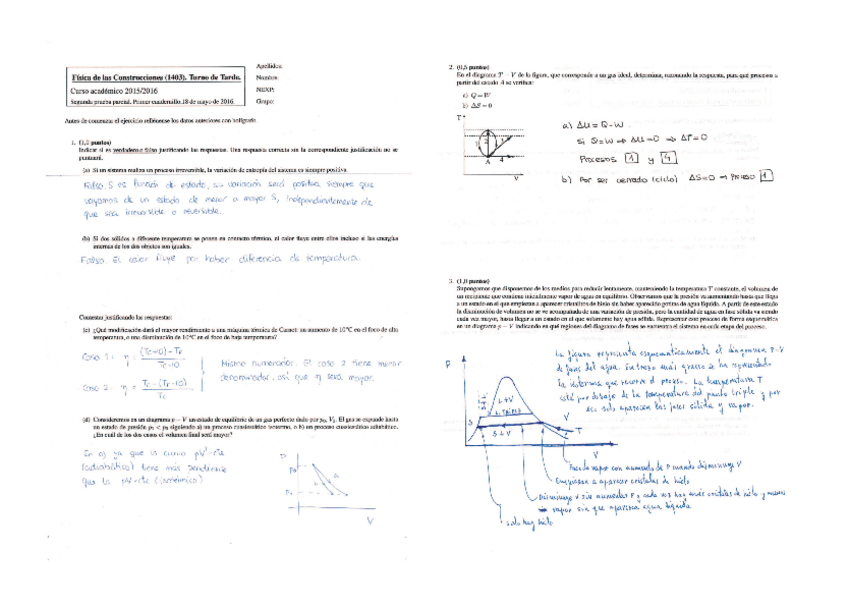 Física de las Construcciones (1403). Turno de Tarde.
Curso académico 2015/2016
Segunda prueba parcial. Primer cuadernillo. 18 de mayo de 2016.
Apellidos:
Nombre:
NEXP:
Grupo:
Antes de comenzar el ejercicio rellénense los datos anteriores con bolígrafo.
1. (1,5 puntos)
Indicar si es verdadero o falso justificando las respuestas. Una respuesta correcta sin la correspondiente justificación no se
puntuará.
(a) Si un sistema realiza un proceso irreversible, la variación de entropía del sistema es siempre positiva.
Falso. S es función de estado, su variación será positiva siempre que
vayamos de un estado de menor a mayor S, independientemente de
que sea irreversible o reversible.
(b) Si dos sólidos a diferente temperatura se ponen en contacto térmico, el calor fluye entre ellos incluso si las energías
internas de los dos objetos son iguales.
Falso. El calor fluye por haber diferencia de temperatura.
Contestar justificando las respuestas:
(c) ¿Qué modificación dará el mayor rendimiento a una máquina térmica de Carnot: un aumento de 10°C en el foco de alta
temperatura, o una disminución de 10°C en el foco de baja temperatura?
Caso 1: η = (Tc+10)-TF / Tc+10
Caso 2: η = Tc-(TF-10) / Tc
Mismo numerador. El caso 2 tiene menor
denominador, así que η será mayor.
(d) Consideremos en un diagrama p − V un estado de equilibrio de un gas perfecto dado por p₀, V₀. El gas se expande hasta
un estado de presión p₁ < p₀ siguiendo a) un proceso cuasiestático isotermo, o b) un proceso cuasiestático adiabático.
¿En cuál de los dos casos el volumen final será mayor?
En a) ya que la curva
(adiabático) tiene más pendiente
que la pV=cte (isotérmico)
P
V
2. (0,5 puntos)
En el diagrama T − V de la figura, que corresponde a un gas ideal, determina, razonando la respuesta, para qué procesos a
partir del estado A se verifica:
a) Q = W
b) ΔS = 0
T
1 2 3
A 4
V
a) ΔU = Q-W
Si Q=W ⇒ ΔU=0 ⇒ ΔT=0
Procesos 1 y 4
b) Por ser cerrado (ciclo) ΔS=0 ⇒ Proceso 1
3. (1,0 puntos)
Supongamos que disponemos de los medios para reducir lentamente, manteniendo la temperatura T constante, el volumen de
un recipiente que contiene inicialmente vapor de agua en equilibrio. Observamos que la presión va aumentando hasta que llega
a un estado en el que empiezan a aparecer cristalitos de hielo sin haber aparecido gotitas de agua líquida. A partir de este estado
la disminución de volumen no se ve acompañada de una variación de presión, pero la cantidad de agua en fase sólida va siendo
cada vez mayor, hasta llegar a un estado en el que solamente hay agua sólida. Representar este proceso de forma esquemática
en un diagrama p − V indicando en qué regiones del diagrama de fases se encuentra el sistema en cada etapa del proceso.
La figura representa esquemáticamente el diagrama P-V
de fases del agua. En trazo más grueso se ha representado
la isoterma que recorre el proceso. La temperatura T
está por debajo de la temperatura del punto triple y por
eso solo aparecen las fases sólida y vapor.
P
L+V
S
S+V
V
T
V
vapor con aumento de P cuando disminuye V
Empiezan a aparecer cristales de hielo
Disminuye V sin aumentar P y cada vez hay más cristales de hielo y menos
vapor sin que aparezca agua líquida
Solo hay hielo